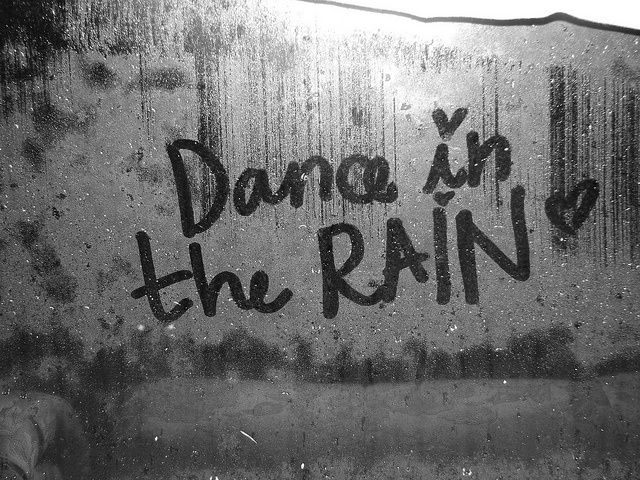 Dance in
the RAIN ♥